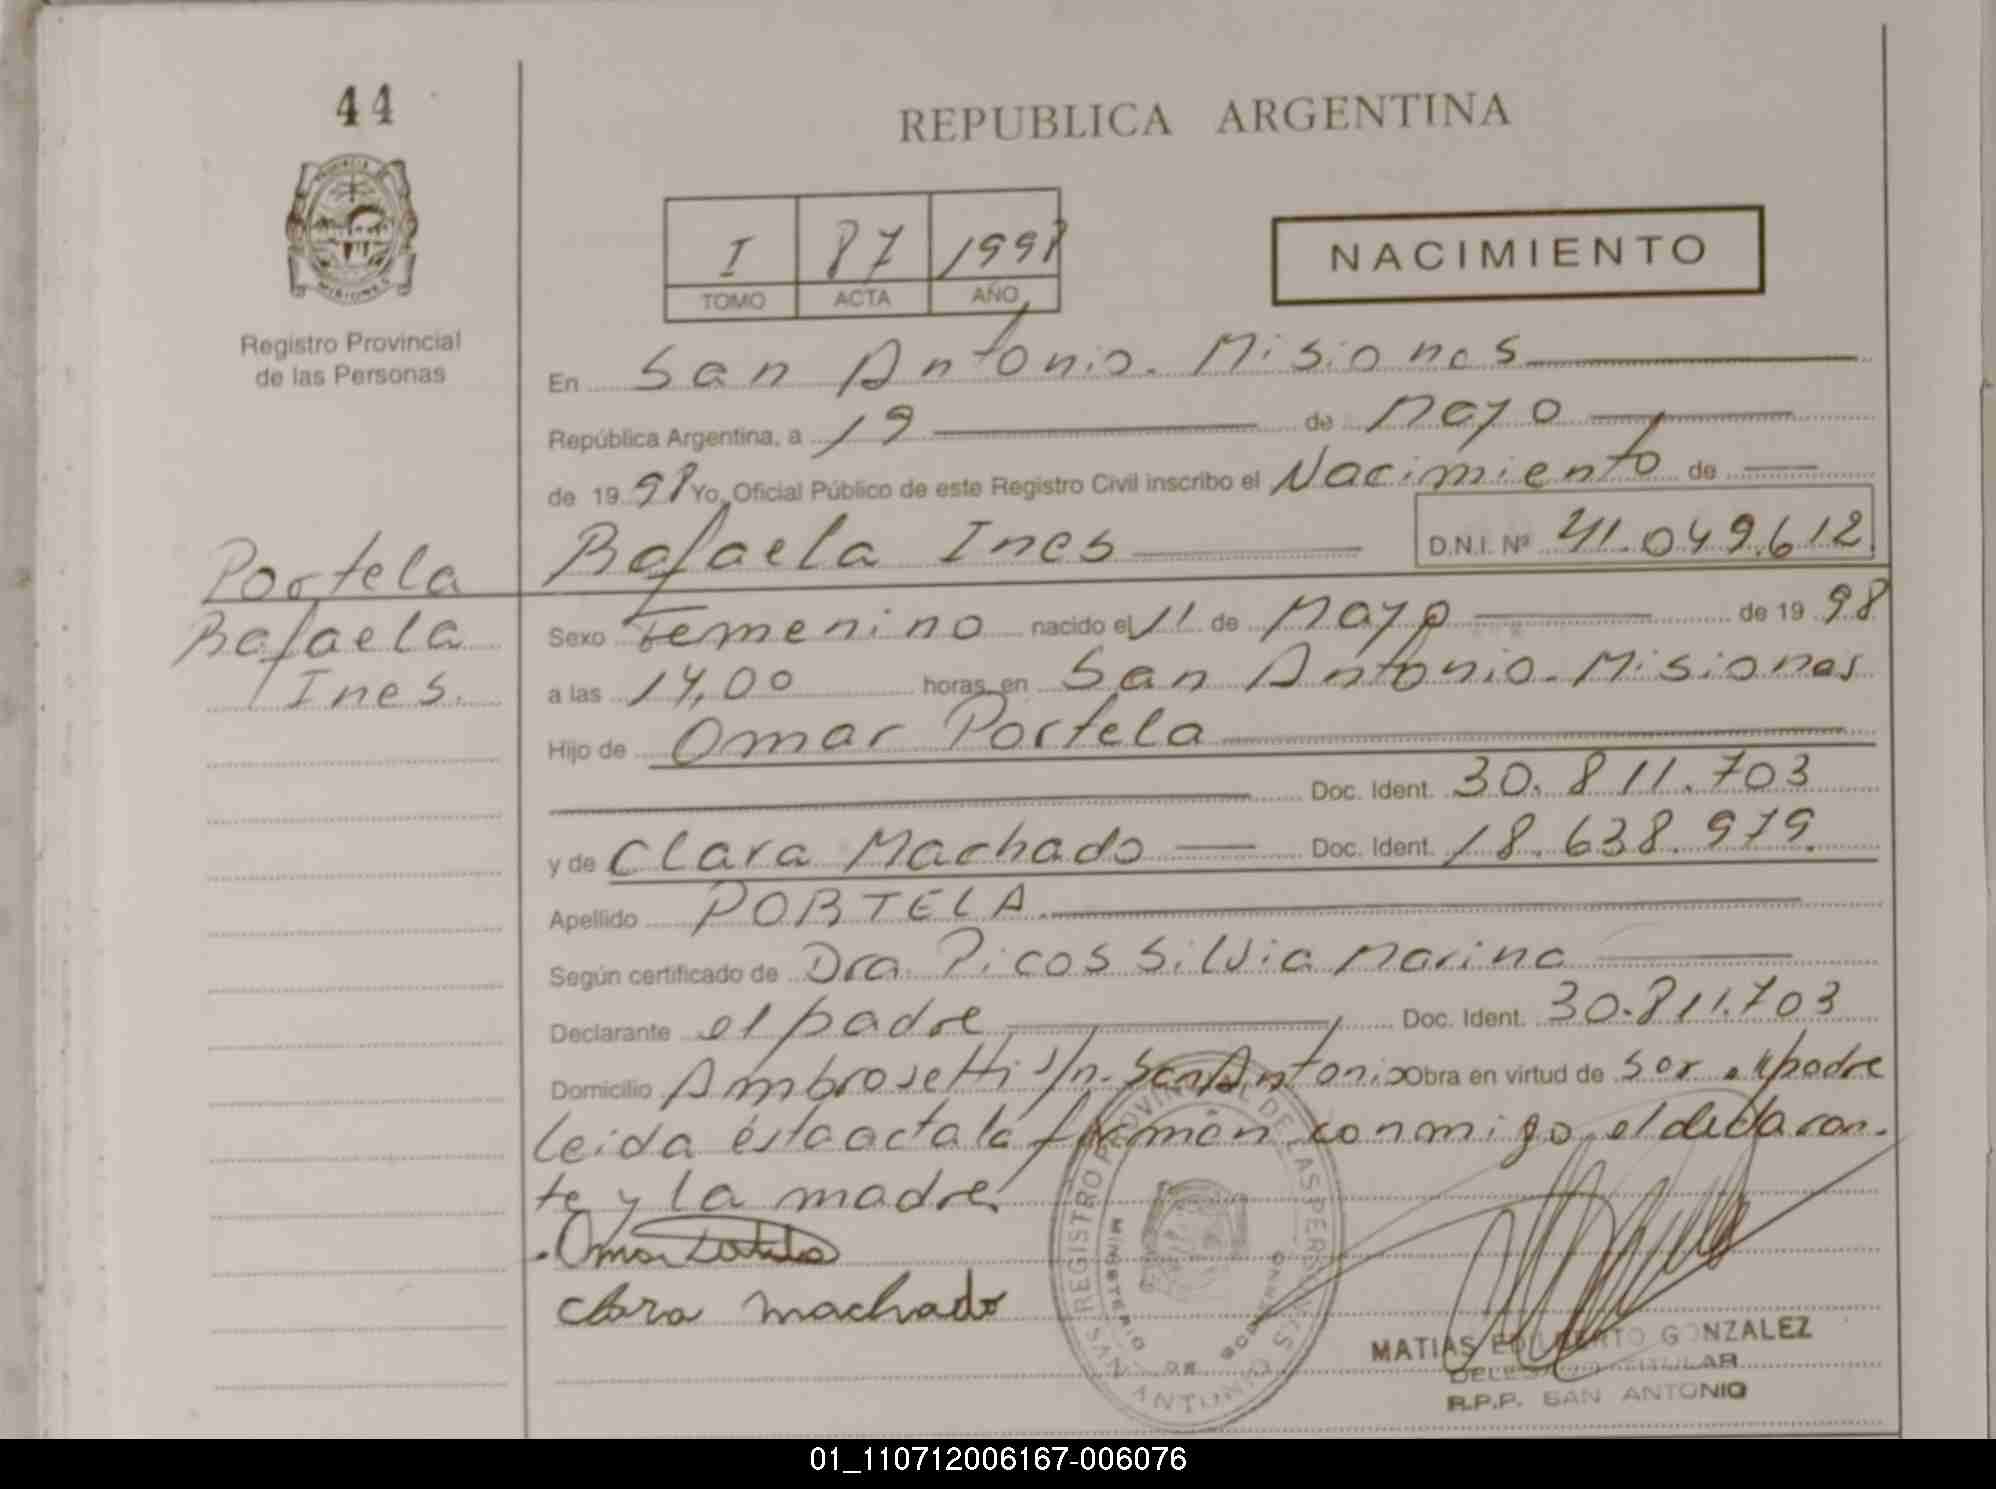 44
PROVINCIA
MISIONES
Registro Provincial
de las Personas
Portela
Rafaela
Ines.
REPUBLICA ARGENTINA
I 87 1998
TOMO ACTA AÑO
NACIMIENTO
En San Antonio. Misiones
República Argentina, a 19 de Mayo
de 19 98 Yo, Oficial Público de este Registro Civil inscribo el Nacimiento de
Rafaela Ines D.N.I. Nº 41.049.612
Sexo Femenino nacido el 11 de Mayo de 19 98
a las 14,00 horas, en San Antonio. Misiones
Hijo de Omar Portela
Doc. Ident. 30.811.703
y de Clara Machado Doc. Ident. 18.638.979.
Apellido PORTELA.
Según certificado de Dra. Picos Silvia Marina
Declarante el padre Doc. Ident. 30.811.703
Domicilio Ambrosetti s/n. San Antonio Obra en virtud de ser el padre
leida ésta acta la firman conmigo, el declaran.
te y la madre.
Omar Portela
Clara Machado
REGISTRO PROVINCIAL DE LAS PERSONAS
MINISTERIO DE GOBIERNO
SAN ANTONIO
MATIAS EDILBERTO GONZALEZ
DELEGADO TITULAR
R.P.P. SAN ANTONIO
01_110712006167-006076